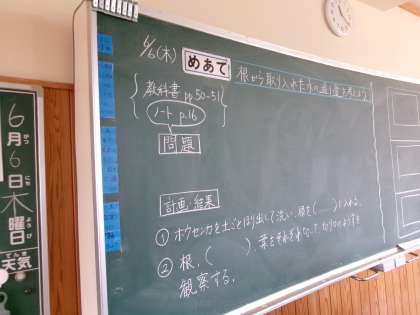 6/6(木)
めあて
根から取り入れた水の通り道を考えよう
教科書 pp.50-51
ノート p.16
問題
計画・結果
① ホウセンカを土ごとほり出して洗い、根を( )に入れる。
② 根、( )、葉をそれぞれ
観察する。
6月
がつ
6日
にち
木曜日
もく よう び
天気